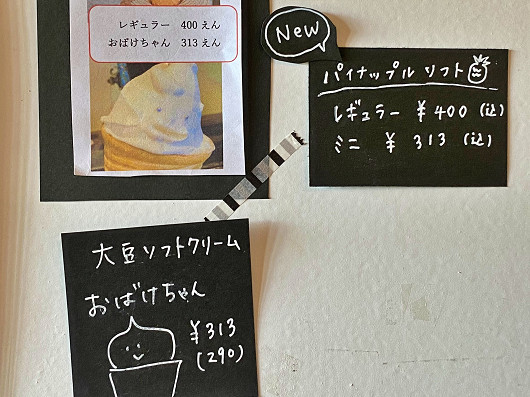 レギュラー 400えん
おばけちゃん 313えん
New
パイナップルソフト
レギュラー ¥400(込)
ミニ ¥313(込)
大豆ソフトクリーム
おばけちゃん
¥313
(290)